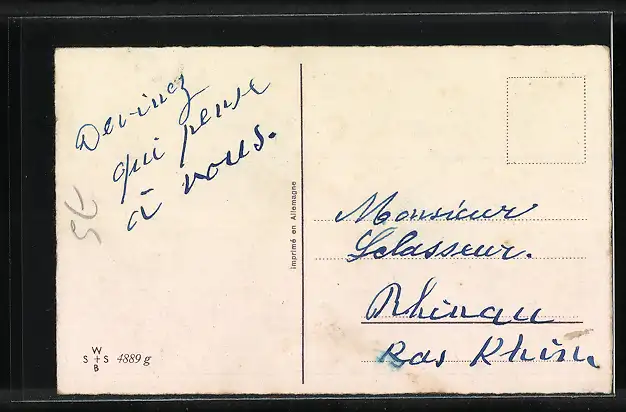 Devinez
qui pense
à vous.
SK
imprimé en Allemagne
Monsieur
Selasseur.
Rhinau
Bas Rhin
W
S + S
B
4889 g